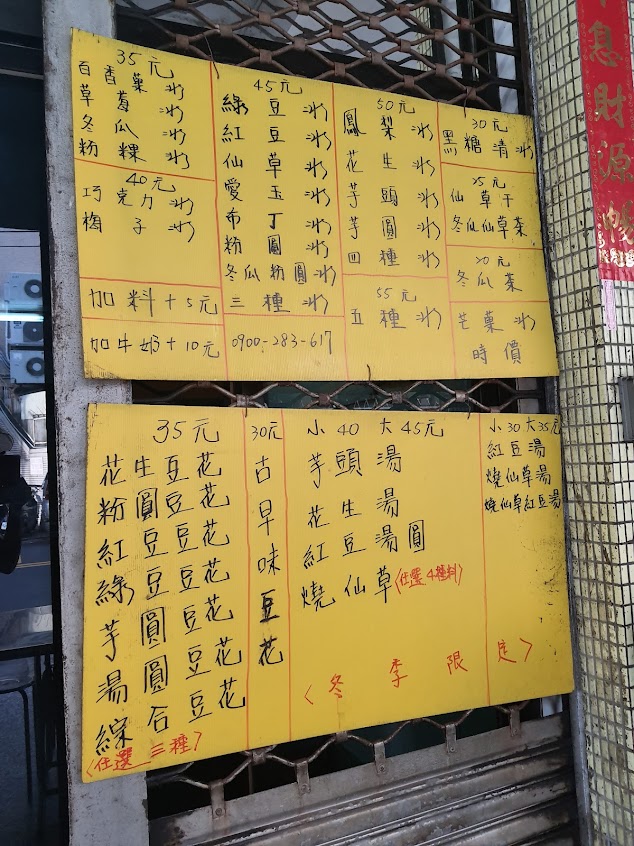 35元
百香菓冰
草莓冰
冬瓜冰
粉粿冰
40元
巧克力冰
梅子冰
加料+5元
加牛奶+10元
45元
綠豆冰
紅豆冰
仙草冰
愛玉冰
布丁冰
粉圓冰
冬瓜粉圓冰
三種冰
0900-283-617
50元
鳳梨冰
花生冰
芋頭冰
芋圓冰
四種冰
55元
五種冰
30元
黑糖清冰
25元
仙草干
冬瓜仙草茶
20元
冬瓜茶
芒菓冰
時價
35元
花生豆花
粉圓豆花
紅豆豆花
綠豆豆花
芋圓豆花
湯圓豆花
綜合豆花
<任選三種>
30元
古早味豆花
小40大45元
芋頭湯
花生湯
紅豆湯圓
燒仙草<任選4種料>
小30大35元
紅豆湯
燒仙草湯
燒仙草紅豆湯
<冬季限定>
息財源暢